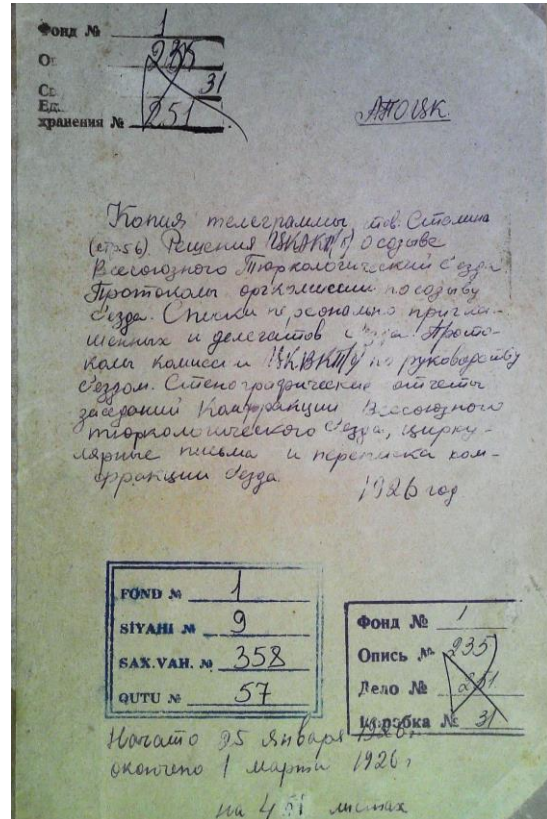 Фонд № 1
О 235
Св 31
Ед.
хранения № 251
Копия телеграммы тов. Сталина
(стр. 56). Решения ЦК ВКП(б) о созыве
Всесоюзного Тюркологический съезда
Протоколы оргкомиссии по созыву
съезда. Списки персонально пригла-
шенных и делегатов съезда. Прото-
колы комиссии ЦК ВКП(б) по руководству
съездом. Стенографические отчеты
заседаний Комфракции Всесоюзного
тюркологического съезда, цирку-
лярные письма и переписка ком-
фракции съезда.
1926 год
FOND № 1
SİYAHI № 9
SAX.VAH. № 358
QUTU № 57
Фонд № 1
Опись № 235
Дело № 251
Коробка № 31
Начато 25 января 1926 г.
окончено 1 марта 1926 г
на листах